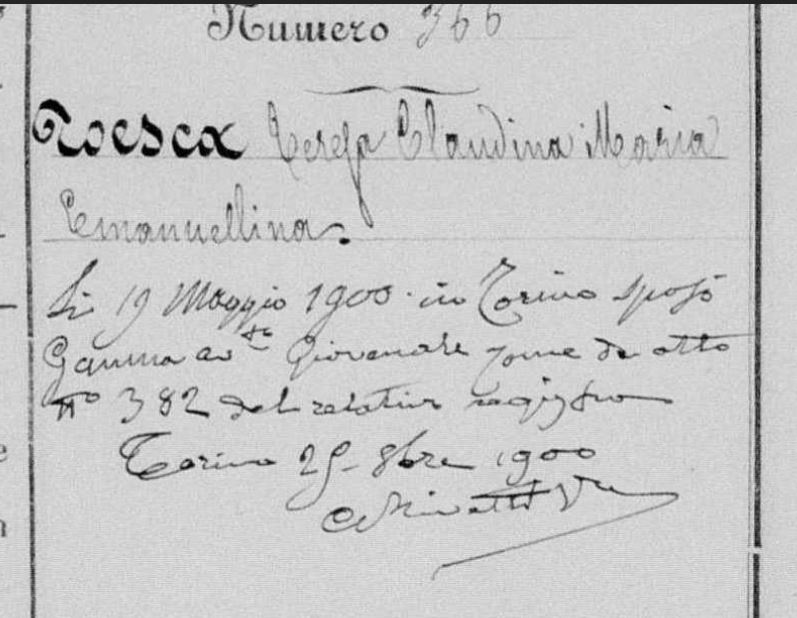 Numero 366
Toesca Teresa Claudina Maria
Emanuellina.
Li 19 Maggio 1900 in Torino sposò
Gamma av.to Giovenale come da atto
N° 382 del relativo registro
Torino 25 - 8bre 1900